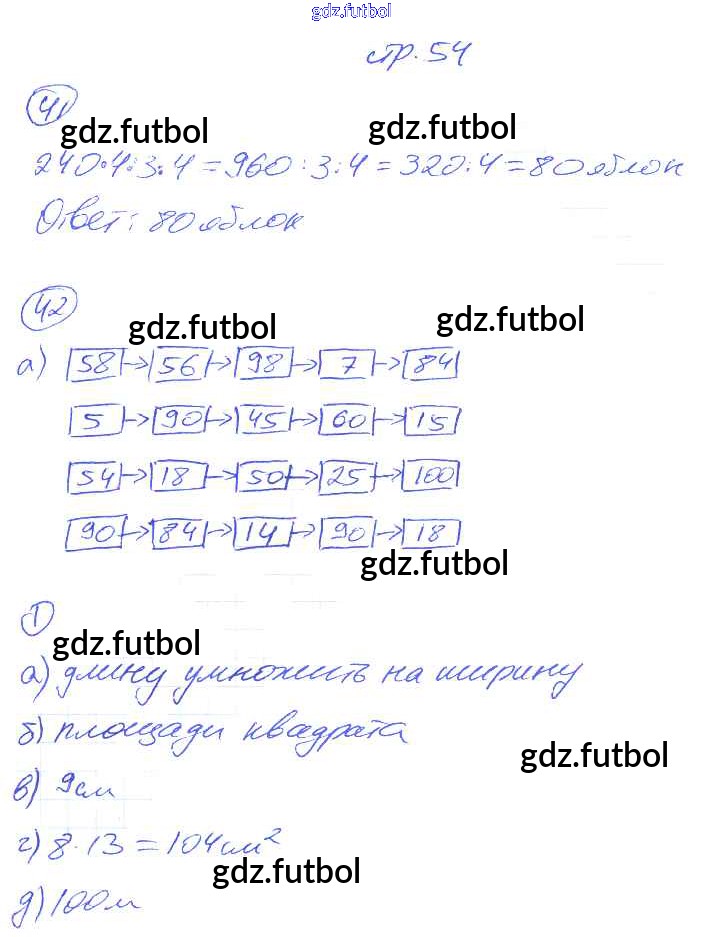 gdz.futbol
стр. 54
41
gdz.futbol gdz.futbol
240·4:3:4=960:3:4=320:4=80 яблок
Ответ: 80 яблок
42
gdz.futbol gdz.futbol
а) 58→56→98→7→84
5→90→45→60→15
54→18→50→25→100
90→84→14→90→18
gdz.futbol
1
gdz.futbol
а) длину умножить на ширину
б) площади квадрата
gdz.futbol
в) 9см
г) 8·13=104см²
gdz.futbol
д) 100м